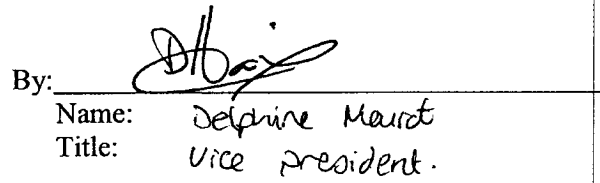 By:
Name: Delphine Mourot
Title: Vice president.